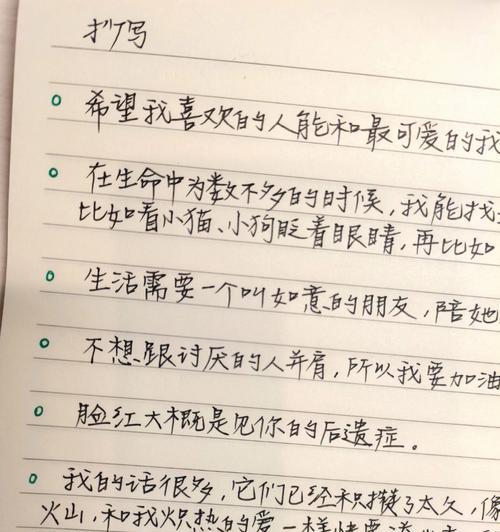 扩写
希望我喜欢的人能和最可爱的我
在生命中为数不多的时候，我能找
比如看小猫、小狗眨着眼睛，再比如
生活需要一个叫如意的朋友，陪她
不想跟讨厌的人并肩，所以我要加油
脸红大概是见你的后遗症。
我的话很多，它们已经积攒了太久，像
火山，和我炽热的爱一样快要溢出